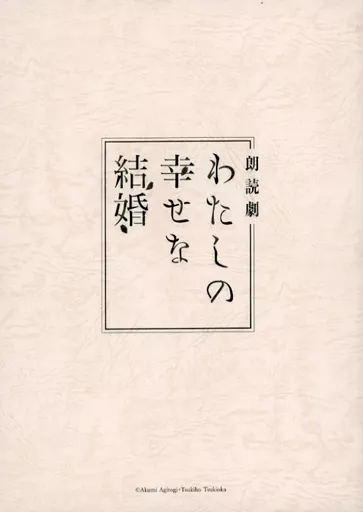 朗読劇
わたしの
幸せな
結婚
©Akumi Agitogi・Tsukiho Tsukioka